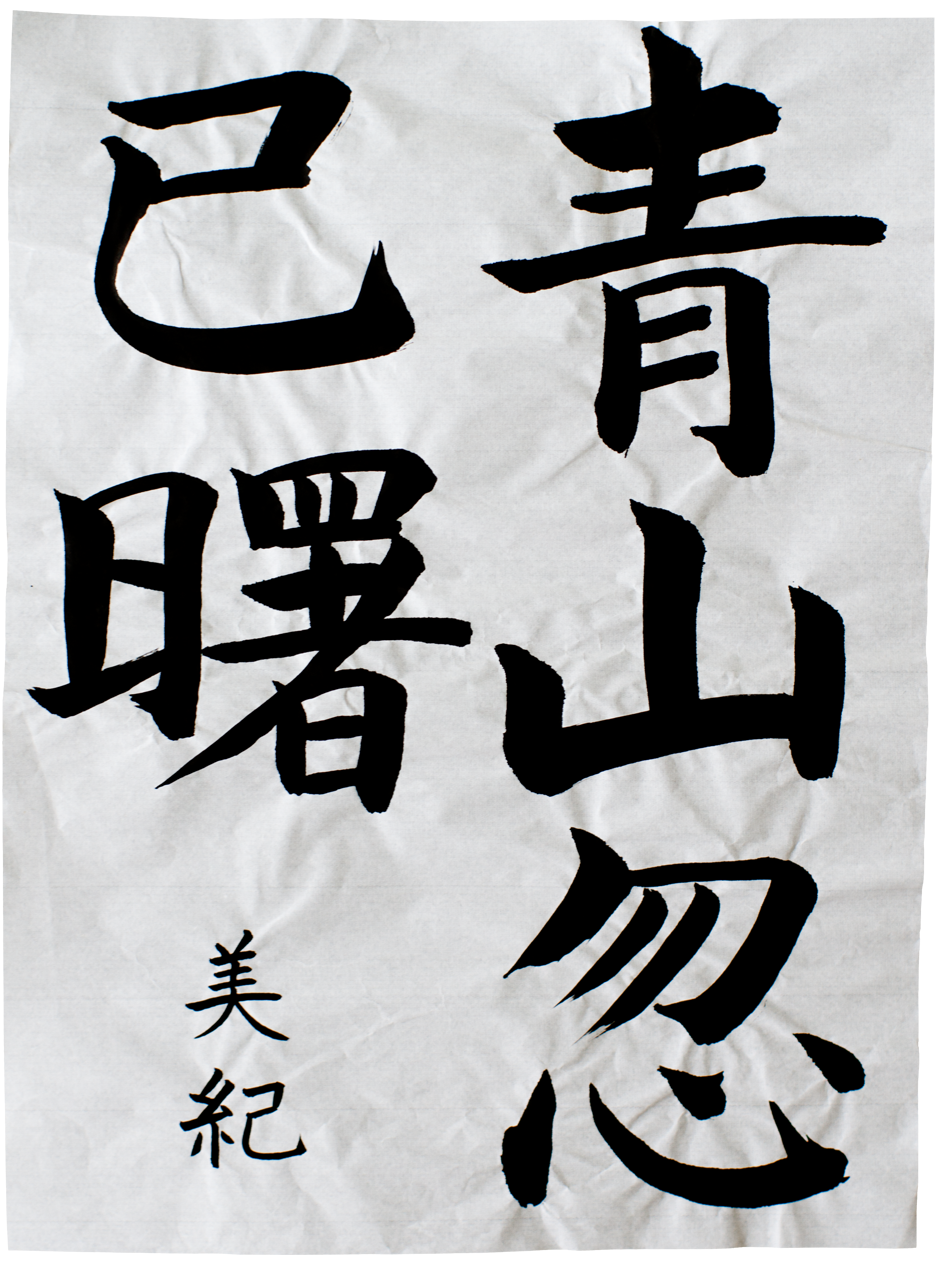 青山忽
已曙
美紀